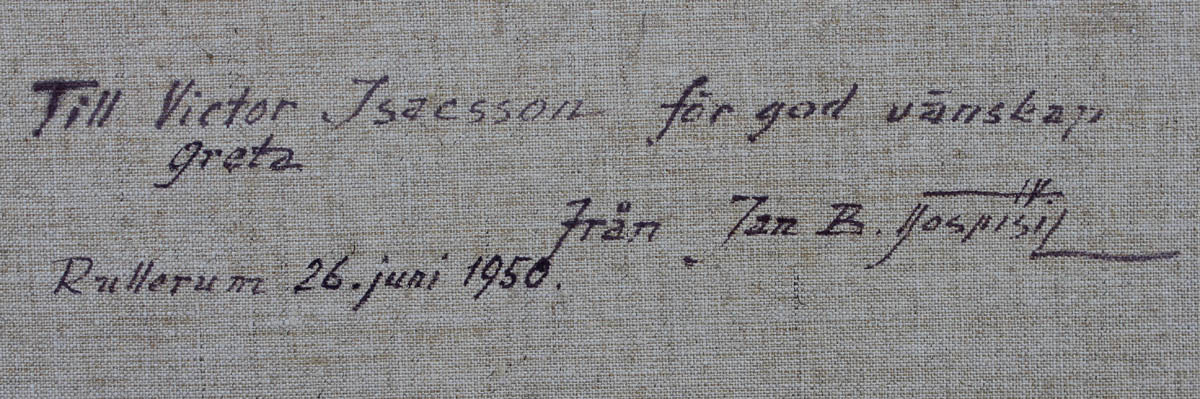 Till Victor Isacsson för god vänskap
Greta
från Jan B. Pospisil
Rullerum 26. juni 1950.